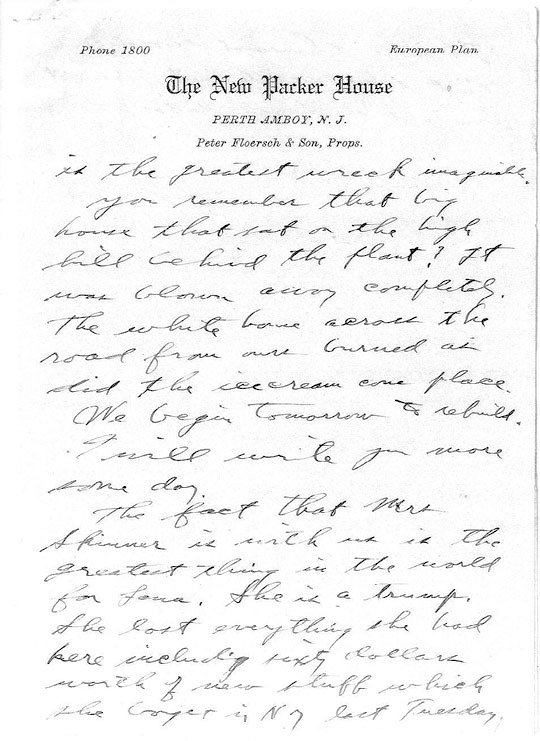 Phone 1800
European Plan
The New Packer House
PERTH AMBOY, N. J.
Peter Floersch & Son, Props.
is the greatest wreck imaginable.
you remember that big
house that sat on the high
hill behind the plant? It
was blown away completely.
The white house across the
road from ours burned as
did the icecream cone place.
We begin tomorrow to rebuild.
I will write you more
some day.
The fact that Mrs
Skinner is with us is the
greatest thing in the world
for Lena. She is a trump.
She lost everything she had
here including sixty dollars
worth of new stuff which
she in N Y last Tuesday.